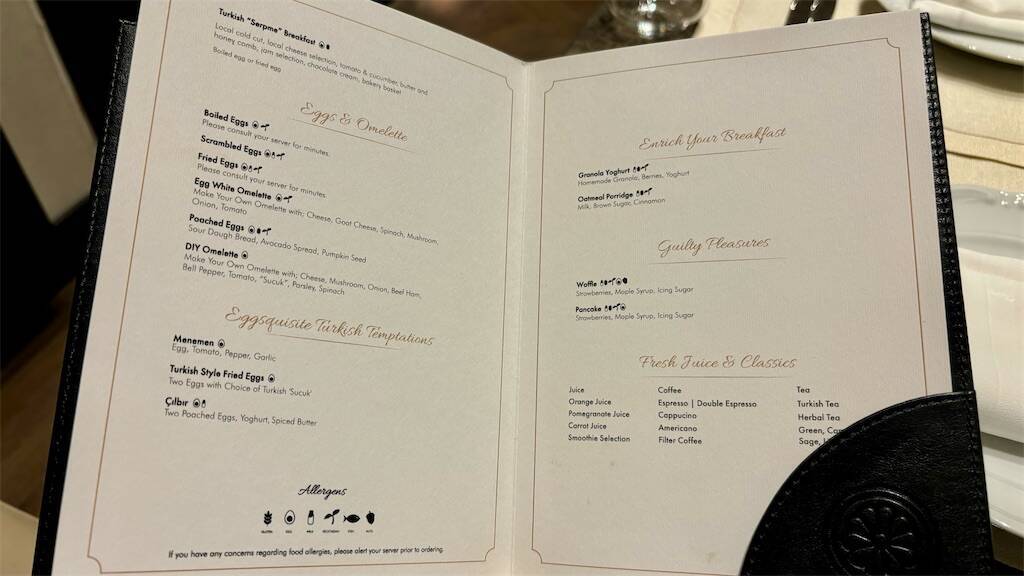 Turkish "Serpme" Breakfast
Local cold cut, local cheese selection, tomato & cucumber, butter and
honey comb, jam selection, chocolate cream, bakery basket
Boiled egg or fried egg
Eggs & Omelette
Boiled Eggs
Please consult your server for minutes.
Scrambled Eggs
Fried Eggs
Please consult your server for minutes.
Egg White Omelette
Make Your Own Omelette with; Cheese, Goat Cheese, Spinach, Mushroom,
Onion, Tomato
Poached Eggs
Sour Daugh Bread, Avocado Spread, Pumpkin Seed
DIY Omelette
Make Your Own Omelette with; Cheese, Mushroom, Onion, Beef Ham,
Bell Pepper, Tomato, "Sucuk", Parsley, Spinach
Eggsquisite Turkish Temptations
Menemen
Egg, Tomato, Pepper, Garlic
Turkish Style Fried Eggs
Two Eggs with Choice of Turkish 'Sucuk'
Çılbır
Two Poached Eggs, Yoghurt, Spiced Butter
Allergens
GLUTEN EGG MILK VEGETARIAN FISH NUTS
If you have any concerns regarding food allergies, please alert your server prior to ordering.
Enrich Your Breakfast
Granola Yoghurt
Homemade Granola, Berries, Yoghurt
Oatmeal Porridge
Milk, Brown Sugar, Cinnamon
Guilty Pleasures
Waffle
Strawberries, Maple Syrup, Icing Sugar
Pancake
Strawberries, Maple Syrup, Icing Sugar
Fresh Juice & Classics
Juice
Orange Juice
Pomegranate Juice
Carrot Juice
Smoothie Selection
Coffee
Espresso | Double Espresso
Cappucino
Americano
Filter Coffee
Tea
Turkish Tea
Herbal Tea
Green,
Sage,